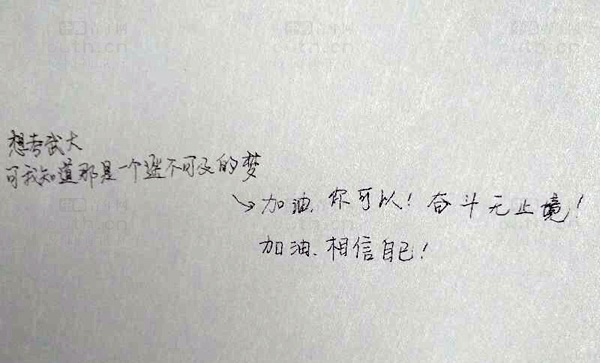 想考武大
可我知道那是一个遥不可及的梦
→加油.你可以!奋斗无止境!
加油.相信自己!